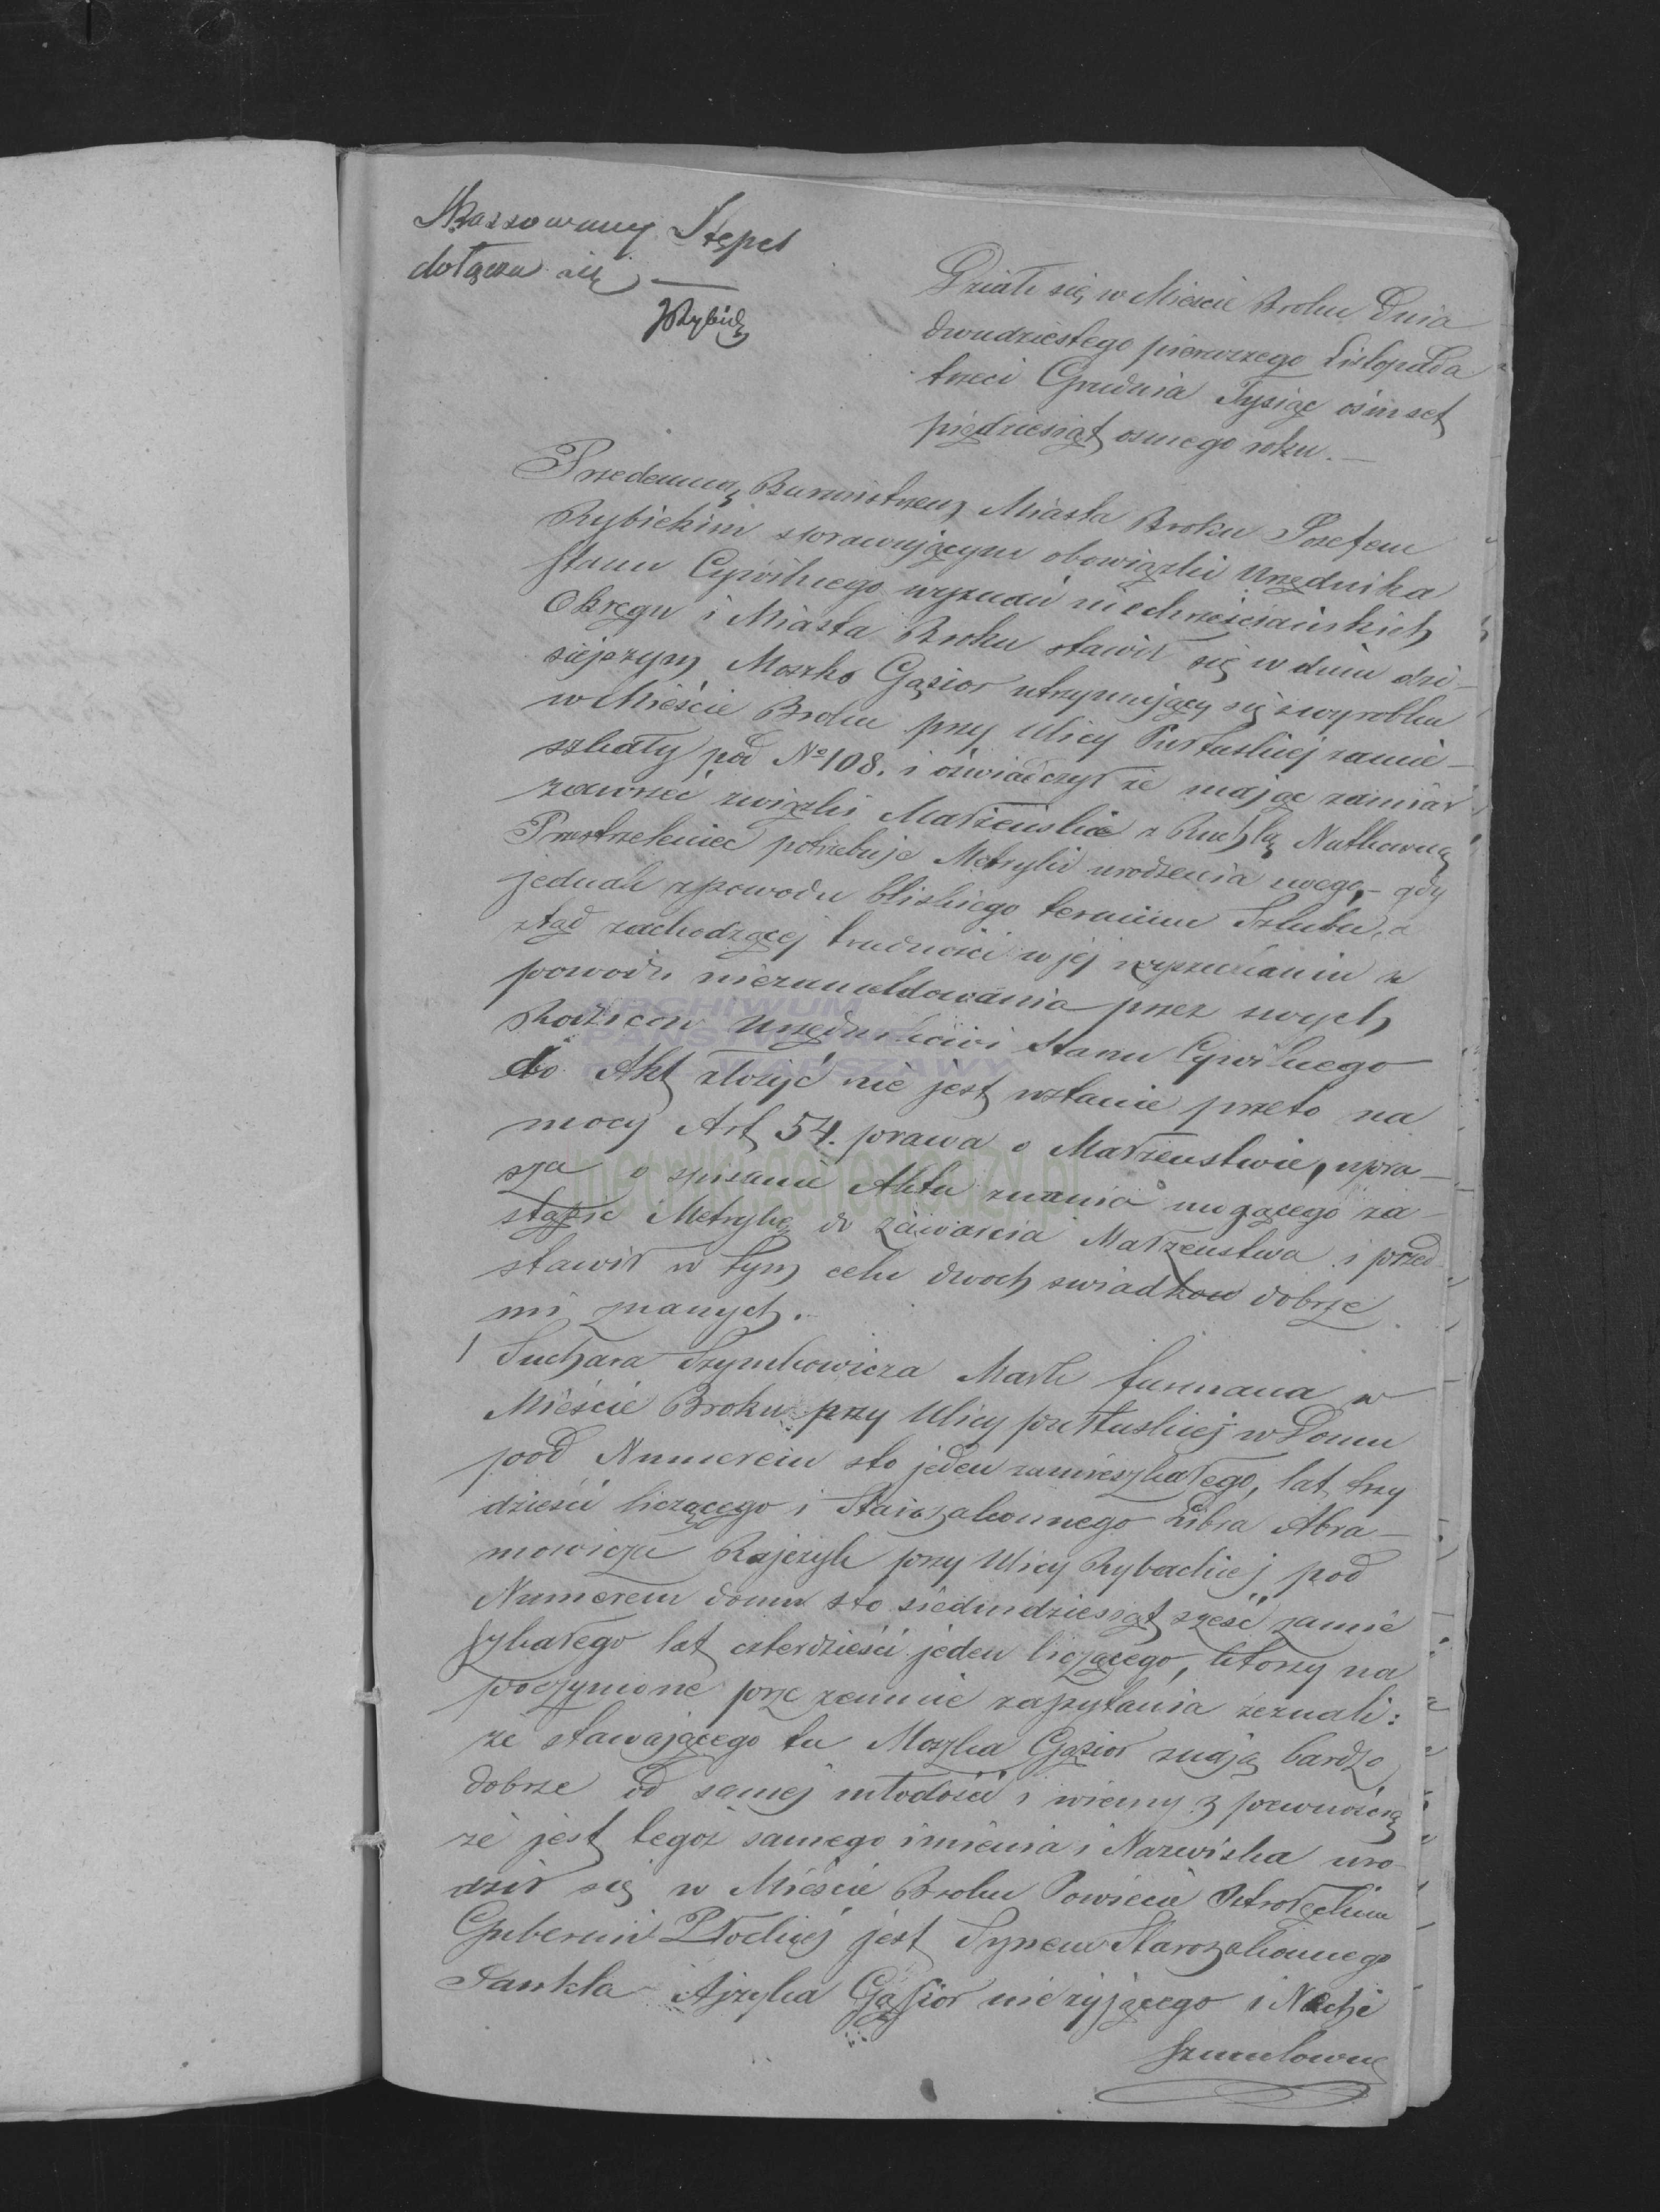 Skassowany Stępel
dołącza się —
JRybicki
Działo się w Mieście Broku Dnia
dwudziestego pierwszego Listopada
trzeci Grudnia Tysiąc ośmset
pięćdziesiąt osmego roku. —
Przedemną Burmistrzem Miasta Broku Józefem
Rybickim sprawującym obowiązki Urzędnika
Stanu Cywilnego wyznań niechrześciańskich
Okręgu i Miasta Broku stawił się w dniu dzi-
siejszym Moszko Gąsior utrzymujący się z wyrobku
w Mieście Broku przy Ulicy Pułtuskiej zamie-
szkały pod No 108. i oświadczył że mając zamiar
zawrzeć związki Małżeńskie z Ruchlą Natkowną
Przestrzeleniec potrzebuje Metryki urodzenia swego, – gdy
jednak z powodu bliskiego terminu Szlubu, a
ztąd zachodzącej trudności w jej wyszukaniu z
powodu niezameldowania przez swych
Rodziców Urzędnikowi Stanu Cywilnego
do Akt złożyć nie jest wstanie przeto na
mocy Art 54. prawa o Małżeństwie, upra-
sza o spisanie Aktu znania mogącego za-
stąpić Metrykę do zawarcia Małżeństwa i przed-
stawił w tym celu dwoch swiadkow dobrze
mi znanych.
1 Suchara Szymkowicza Mark furmana w
Mieście Broku przy Ulicy pułtuskiej w Domu
pod Numerem sto jeden zamieszkałego, lat trzy
dzieści liczącego i Starozakonnego Libra Abra-
mowicza Rajczyk przy Ulicy Rybackiej pod
Numerem domu sto siedmdziesiąt sześć zamie
szkałego lat czterdzieści jeden liczącego, którzy na
poczynione prze zemnie zapytania zeznali:
że stawającego tu Moszka Gąsior znają bardzo
dobrze od samej młodości i wiemy z pewnością
że jest tegoż samego imienia i Nazwiska uro-
dził się w Mieście Broku Powiecie Ostrołęckim
Gubernii Płockiej jest Synem Starozakonnego
Jankla Ajzyka Gąsior nieżyjącego i Nachi
Szmulowny
ARCHIWUM
PAŃSTWOWE
WARSZAWY
metryki.genealodzy.pl